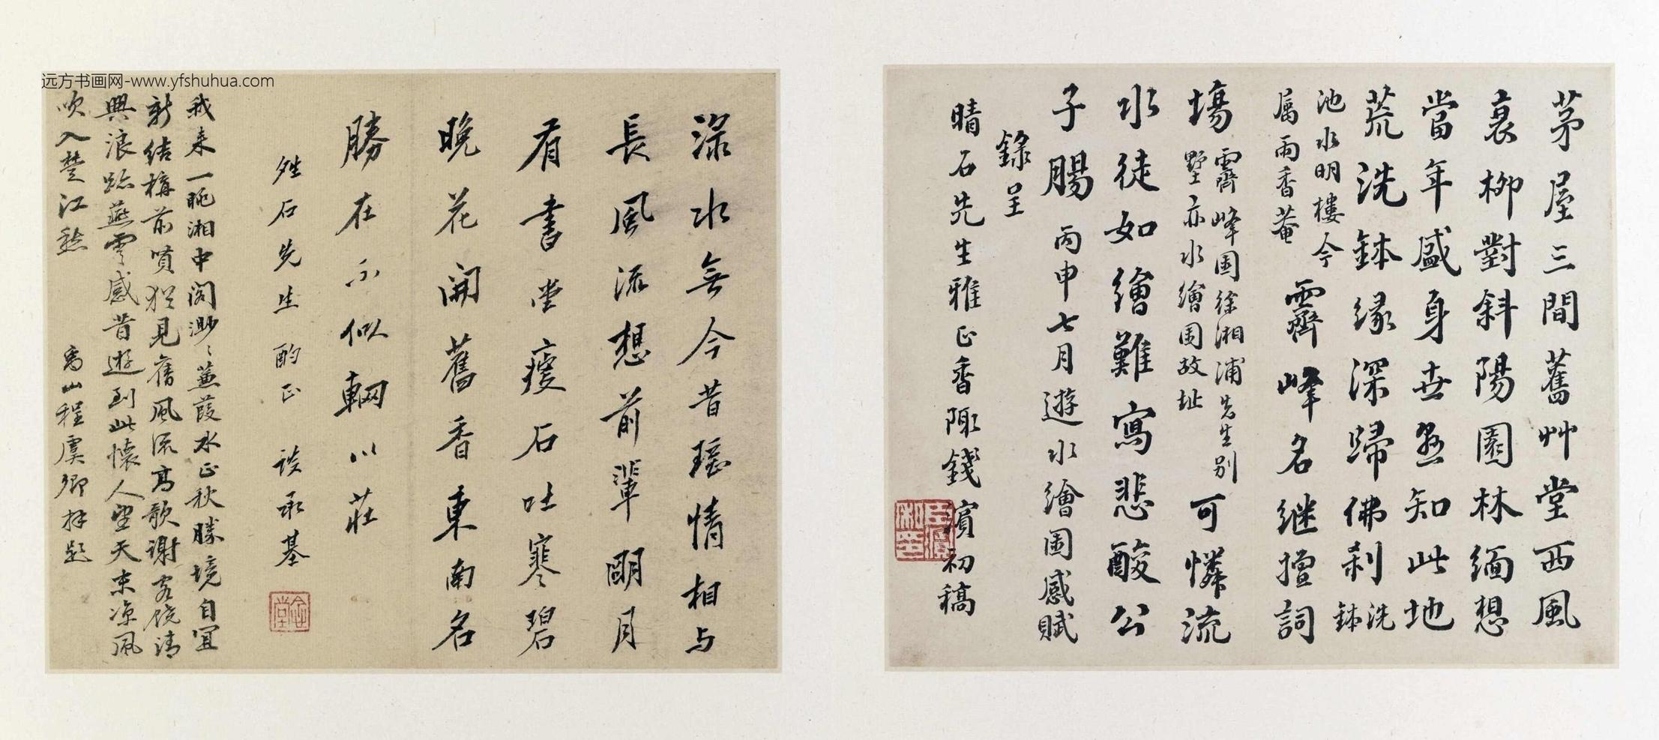 远方书画网-www.yfshuhua.com
茅屋三間舊艸堂西風
衰柳對斜陽園林緬想
當年感身世悬知此地
荒洗鉢緣深歸佛刹洗鉢
池水明樓今
属雨香菴
霽峰名继擅詞
場霽峰園徐湘浦先生别
墅亦水繪園故址
可憐流
水徒如繪難寫悲酸公
子腸丙申七月遊水繪園感賦
錄呈
晴石先生雅正香陬錢濱初稿
渌水無今昔瑤情相與
長風流想前輩明月
看書堂瘦石吐寒碧
晚花開舊香東南名
勝在不似輞川莊
石先生酌正
承基
我来一眺湘中阁渺渺蒹葭水正秋勝境自宜
新結構前噴猶見舊風流高歌謝客饒清
興浪跡燕雲感昔遊到此懷人望天末凉風
吹入楚江愁
禹山程虞卿拜題